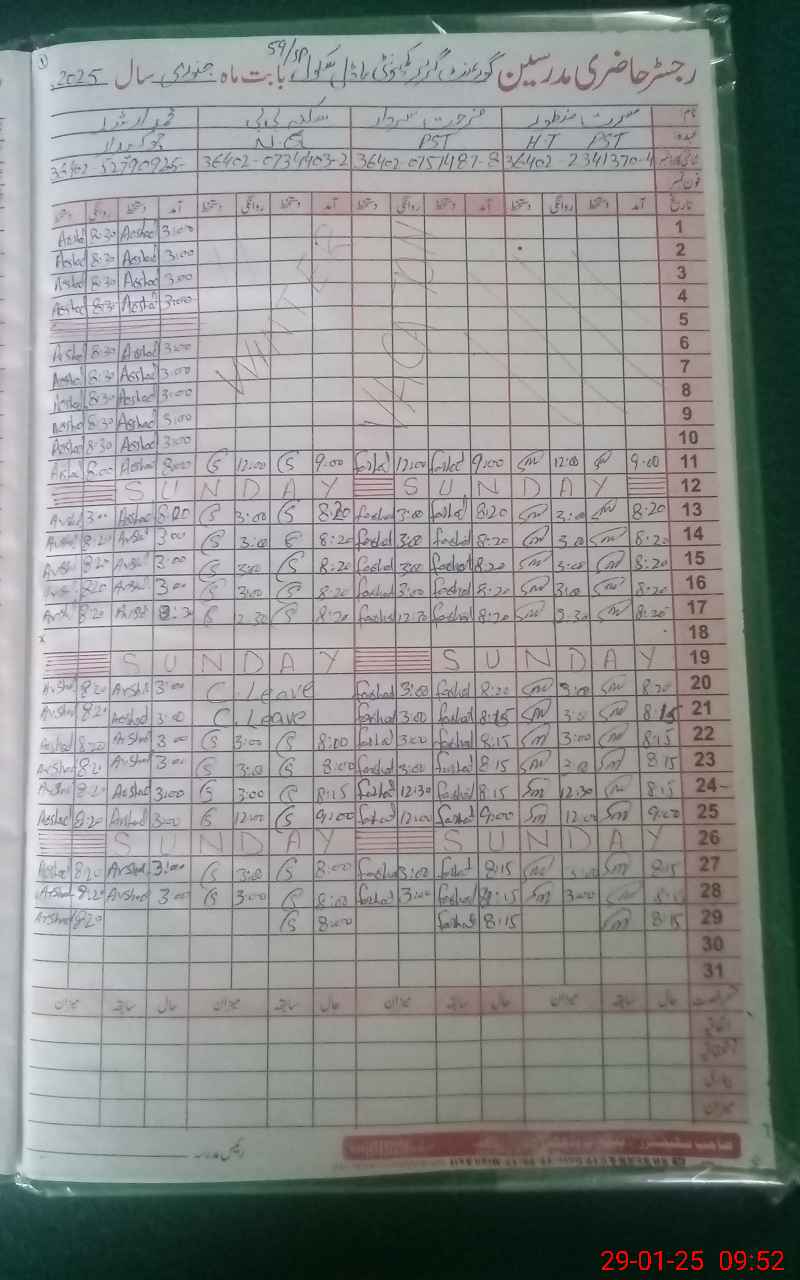 رجسٹر حاضری مدرسین گورنمنٹ گرلز کمیونٹی ماڈل سکول 59/SP بابت ماہ جنوری سال 2025
نام مسرت منظور فرحت سردار سکینہ بی بی محمد ارشد
عہدہ PST H-T PST N.Q چوکیدار
36402-2341370-4 36402-0751487-8 36402-0734403-2 36402-52990925-
فون نمبر
تاریخ آمد دستخط روانگی دستخط آمد دستخط روانگی دستخط آمد دستخط روانگی دستخط آمد دستخط روانگی دستخط
Arshad 8:30 Arshad 3:00 1
Arshad 8:30 Arshad 3:00 2
Arshad 8:30 Arshad 3:00 3
Arshad 8:30 Arshad 3:00 4
5
Arshad 8:30 Arshad 3:00 6
Arshad 8:30 Arshad 3:00 7
Arshad 8:30 Arshad 3:00 8
Arshad 8:30 Arshad 3:00 9
Arshad 8:30 Arshad 3:00 10
WINTER VACATION
Arshad 8:00 Arshad 8:00 12:00 9:00 farhat 12:00 farhat 9:00 Sm 12:00 Sm 9:00 11
SUNDAY SUNDAY 12
Arsh 3:00 Arshad 8:20 3:00 8:20 farhat 3:00 farhat 8:20 Sm 3:00 Sm 8:20 13
Arsh 8:20 Arsh 3:00 3:00 8:20 farhat 3:00 farhat 8:20 Sm 3:00 Sm 8:20 14
Arsh 8:20 Arsh 3:00 3:00 8:20 farhat 3:00 farhat 8:20 Sm 3:00 Sm 8:20 15
Arsh 8:20 Arsh 3:00 3:00 8:20 farhat 3:00 farhat 8:20 Sm 3:00 Sm 8:20 16
Arsh 8:20 Arsh 12.30 8:20 farhat 12:30 farhat 8:20 Sm Sm 8:20 17
18
SUNDAY SUNDAY 19
Arshad 8:20 Arshd 3:00 C.Leave farhat 3:00 farhat 8:20 Sm 3:00 Sm 8:20 20
Arshad 8:20 Arshad 3:00 C.Leave farhat 3:00 farhat 8:15 Sm 3:00 Sm 8:15 21
Arshad 8:20 Arshad 3:00 3:00 8:00 farhat 3:00 farhat 8:15 Sm 3:00 Sm 8:15 22
Arshad 8:20 Arshad 3:00 3:00 8:00 farhat 3:00 farhat 8:15 Sm Sm 8:15 23
Arshad 8:20 Arshad 3:00 3:00 8:15 farhat 12:30 farhat 8:15 Sm 12:30 Sm 8:15 24
Arshad 8:20 Arshad 3:00 12:00 9:00 farhat 12:00 farhat 9:00 Sm 12:00 Sm 9:00 25
SUNDAY SUNDAY 26
Arshad 8:20 Arshad 3:00 3:00 8:00 farhat 3:00 farhat 8:15 Sm Sm 8:15 27
Arshad 8:20 Arshad 3:00 3:00 8:00 farhat 3:00 farhat 8:15 Sm 3:00 Sm 28
Arshad 8:20 8:00 farhat 8:15 Sm 8:15 29
30
31
حال سابقہ میزان حال سابقہ میزان حال سابقہ میزان حال سابقہ میزان
اتفاقی
میزان
رئیس مدرسہ
29-01-25 09:52